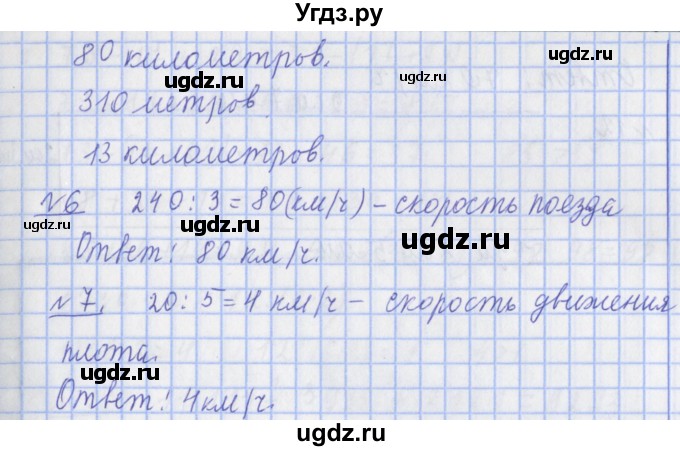 Угдз.ру
80 километров.
ugdz.ru
ugdz.ru
310 метров.
ugdz.ru
13 километров.
ugdz.ru
№6 240 : 3 = 80 (км/ч) – скорость поезда
ugdz.ru
ugdz.ru
Ответ: 80 км/ч.
ugdz.ru
№7. 20 : 5 = 4 км/ч – скорость движения
ugdz.ru
плота.
ugdz.ru
ugdz.ru
Ответ: 4 км/ч.
ugdz.ru